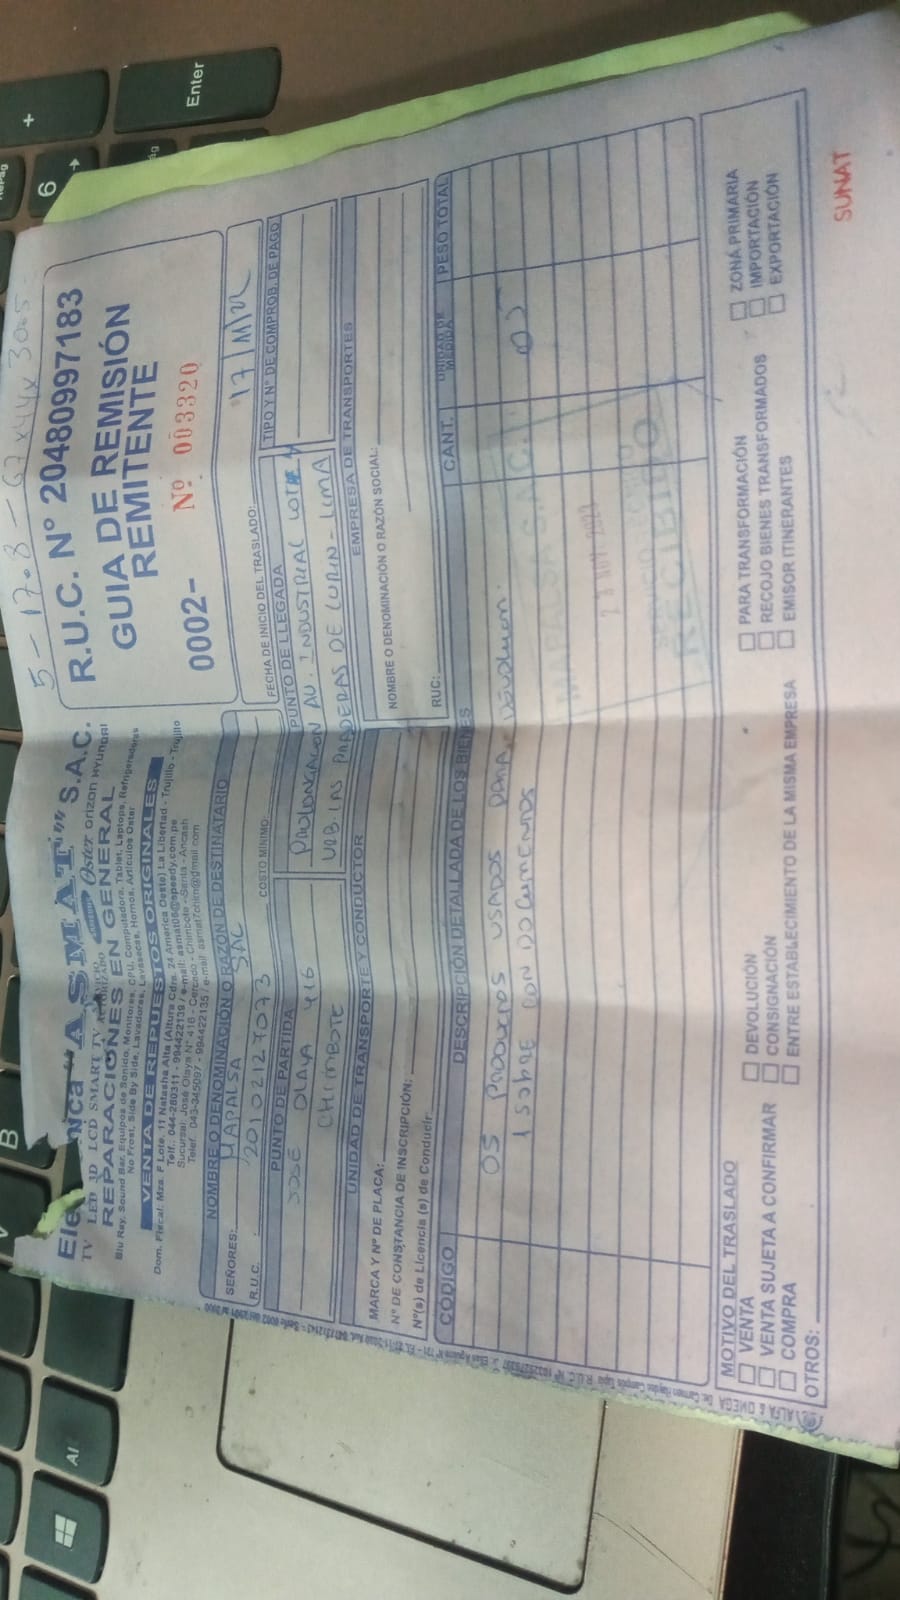 5 - 17.8 - 67x44x30.5
Electrónica "ASMAT" S.A.C.
TV LED 3D LCD SMART TV
Oster Orizon HYUNDAI
REPARACIONES EN GENERAL
Blu Ray, Sound Bar, Equipos de Sonido, Monitores, CPU, Computadora, Tablet, Laptops, Refrigeradoras
No Frost, Side By Side, Lavadoras, Lavasecas, Hornos, Artículos Oster
VENTA DE REPUESTOS ORIGINALES
Dom. Fiscal. Mza. F Lote. 11 Natasha Alta (Altura Cdra. 24 America Oeste) La Libertad - Trujillo - Trujillo
Telf.: 044-280311 - 994422139 / e-mail: asmat06@speedy.com.pe
Sucursal: José Olaya N° 416 - Cercado - Chimbote - Santa - Ancash
Telef.: 043-345097 - 994422135 / e-mail
R.U.C. N° 20480997183
GUIA DE REMISIÓN
REMITENTE
0002- Nº 003320
NOMBRE O DENOMINACIÓN O RAZÓN DE DESTINATARIO
SEÑORES: MAPALSA SAC
R.U.C. 20102127073
COSTO MINIMO:
FECHA DE INICIO DEL TRASLADO: 17/11/22
PUNTO DE PARTIDA
JOSE OLAYA 416
CHIMBOTE
PUNTO DE LLEGADA
PROLONGACION AV. INDUSTRIAL LOTE
URB. LAS PRADERAS DE LURIN - LIMA
TIPO Y Nº DE COMPROB. DE PAGO
UNIDAD DE TRANSPORTE Y CONDUCTOR
MARCA Y Nº DE PLACA:
Nº DE CONSTANCIA DE INSCRIPCIÓN:
Nº(s) de Licencia (s) de Conducir
EMPRESA DE TRANSPORTES
NOMBRE O DENOMINACIÓN O RAZÓN SOCIAL:
RUC:
CÓDIGO DESCRIPCIÓN DETALLADA DE LOS BIENES CANT. UNIDAD DE MEDIDA PESO TOTAL
05 PRODUCTOS USADOS PARA 05
1 SOBRE CON DOCUMENTOS
MAPALSA S.A.C.
NOV
RECIBIDO
MOTIVO DEL TRASLADO
VENTA
VENTA SUJETA A CONFIRMAR
COMPRA
DEVOLUCIÓN
CONSIGNACIÓN
ENTRE ESTABLECIMIENTO DE LA MISMA EMPRESA
PARA TRANSFORMACIÓN
RECOJO BIENES TRANSFORMADOS
EMISOR ITINERANTES
ZONA PRIMARIA
IMPORTACIÓN
EXPORTACIÓN
OTROS:
SUNAT
ALFA & OMEGA
Enter
6
+
B
Al